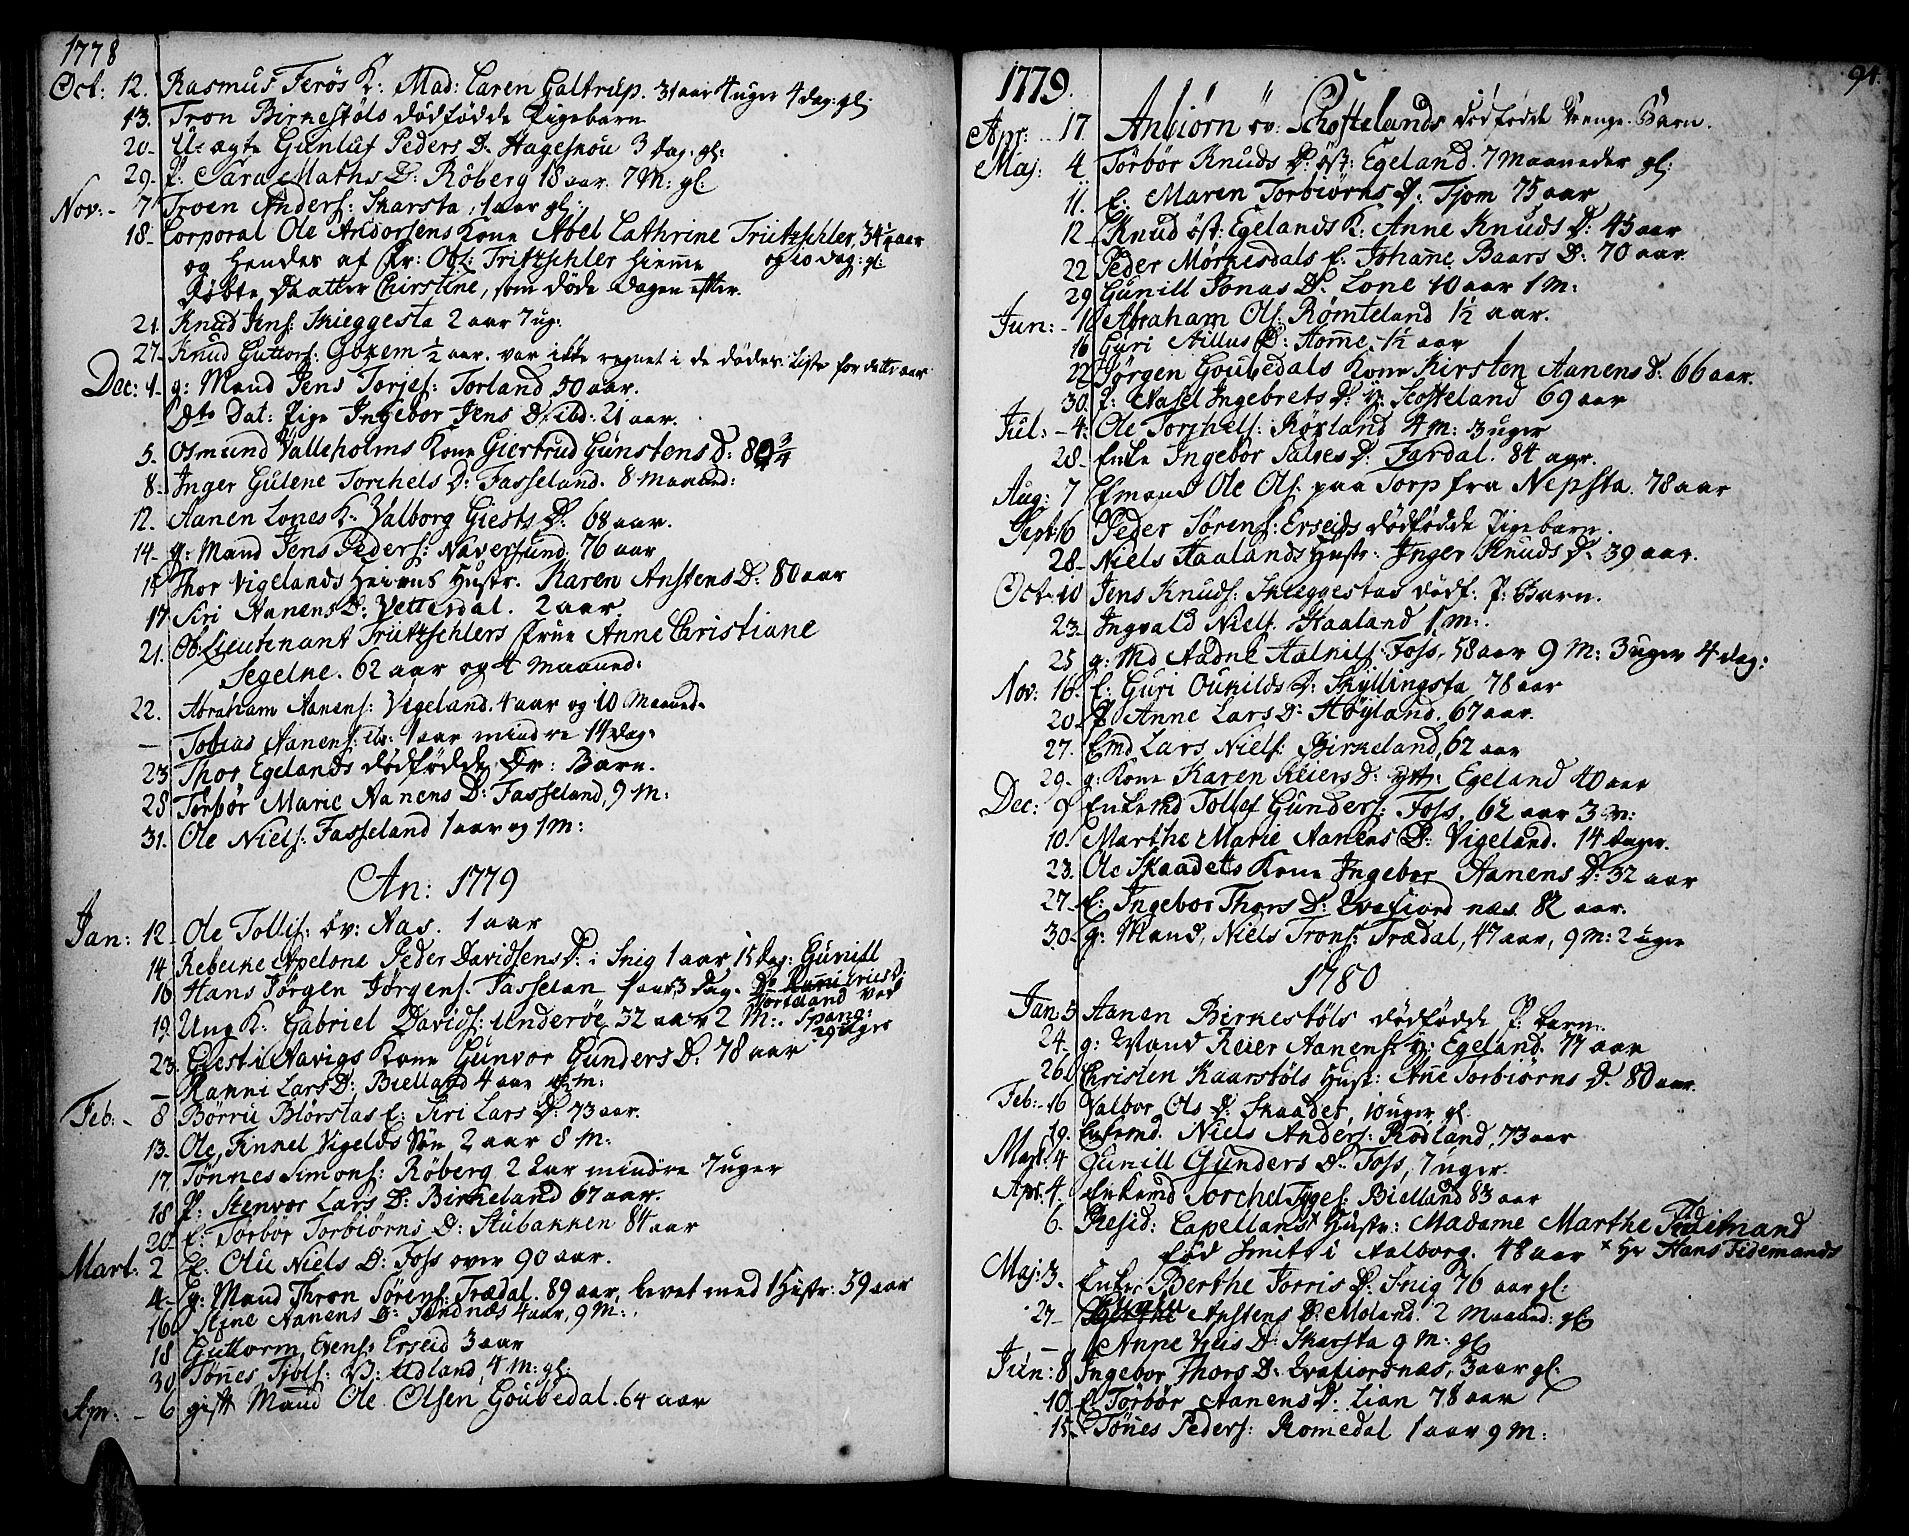 1778
Oct: 12. Rasmus Ferös K: Mad: Caren Galtrup. 31 aar 4 uger 4 dag: gl:
13. Tron Birkestöls dödfödde Pigebarn
20- Uægte Gunluf Peders D. Hageskou 3 dag. gl:
29- P: Sara Maths D: Röberg 18 aar. 7 M: gl:
Nov: - 7 Troen Anders: Skarsta, 1 aar gl:
18- Corporal Ole Andersens Kone Abel Cathrine Trützschler, 34 1/4 aar
og hendes af Hr: Ob: Tritzschler hieme og 10 dag: gl:
döbte Daatter Chirstine, som döde Dagen efter.
21. Knud Jens: Skieggesta 2 aar 7 ug:
27- Knud Guttors: Goxem 1/2 aar. var ikke regnet i de dödes Liste for dette aar
Dec: 4- g: Mand Jens Torjes: Torland 50 aar.
Dto Dat: Pige Ingebor Jens D: ibd: 21 aar.
5. Osmund Valleholms Kone Giertrud Gunstens D: 80 3/4
8- Inger Gulene Torchels D: Fasseland. 8 Maaned:
12. Aanen Lones K: Valborg Giests D: 68 aar.
14- g: Mand Jens Peders: Naversund. 76 aar
Thor Vigelands Heivns Hustr. Karen Anstens D: 80 aar
17 Siri Aanens D: Vetterdal. 2 aar
21. Ob:Lieutenant Trützschlers Frue Anne Christiane
Segelke. 62 aar og 4 Maaned:
22. Abraham Aanens: Vigeland. 4 aar og 10 Maaned.
— Tobias Aanens: ib: 1 aar mindre 14 dag.
23 Thor Egelands dödfödde Dr: Barn.
28 Torbör Marie Aanens D: Fasseland, 9 M:
31. Ole Niels: Fasseland 1 aar og 1 M:
An: 1779
Jan: 12- Ole Tollis: öv: Aas. 1 aar
14 Rebecke Apelone Peder Davidsens D: i Snig 1 aar 15 dag: Gunill
16 Hans Jörgen Jörgens: Fasselan 1 aar 3 dag.
19. Ung K. Gabriel Davids: Underöe, 32 aar 2 M:. Spang:
23. Giesti Aavigs Kone Gunvor Gunders D: 78 aar
— Ranni Lars D: Bielland 4 aar M:
Feb: - 8 Börru Blörstas E: Siri Lars D: 73 aar.
13. Ole, Finnel Vigelds Sön 2 aar 8 M:
17. Tönnes Simons: Röberg 2 aar mindre 7 uger
18 P: Stenvor Lars D: Birkeland 67 aar.
20 E: Torbor Torbiörns D: Stubakken 84 aar
Mart: 2 E: Olu Niels D: Foss over 90 aar.
4- g: Mand Thron Sörens: Trædal. 89 aar, levet med 1 Hustr: 59 aar
16 Stine Aanens D: Sandnæs 4 aar, 9 M:
18 Guttorm Evens: Erseid 3 aar
30 Tönes Tjöls: Udland, 4 M: gl:
Apr: - 6 gift Mand Ole Olsen Goubedal. 64 aar
94.
1779.
Apr: - 17 Anbiörn öv: Schoftelands dödfödde Drenge-Barn.
Maj: 4 Torbör Knuds D: öst: Egeland. 7 Maaneder gl:
11. E: Maren Torbiörns D: Tjom 75 aar
12- Knud öst: Egelands K: Anne Knuds D: 45 aar
22 Peder Mörkesdals E: Johane Baars D: 70 aar
29 Gunill Jonas D: Lone 10 aar 1 M:
Jun: - Abraham Ols: Römteland 1 1/2 aar.
16 Guri Aillus D: Home, 1/2 aar
22 Jörgen Goubedals Kone Kirsten Aanens D: 66 aar.
30. P: Aasel Ingebrets D: y: Scofteland 69 aar
Jul: - 4: Ole Torchels: Röxland 4 M: 3 uger
28- Enke Ingebor Salves D: Fardal. 84 aar.
Aug: 7 Ole Ols. paa Torp fra Nepsta. 78 aar
Sept: 6 Peder Sörens: Erseids dödfödde Pigebarn.
28- Niels Haalands Hustr: Inger Knuds D: 39 aar.
Oct. 10 Jens Knuds: Skieggestas dödf: P: Barn.
23- Ingvald Niels. Haaland 1 M:.
25 g: Md Aadne Aalnils: Foss, 58 aar 9 M: 3 uger 4 dag:
Nov: 16. E: Guri Oukilds D: Skyllingsta 78 aar
20 P Anne Lars D: Höyland. 67 aar.
27. Emd Lars Niels: Birkeland, 62 aar
29- g: Kone Karen Reiers D: Egeland 40 aar
Dec: 9 Enkemd Tollef Gunders: Foss, 62 aar 3 M:
10. Marthe Marie Aanens D: Vigeland. 14 dager.
23. Ole Skaadets Kone Ingebor Aanens D: 32 aar
27- E: Ingebor Thors D: Qvafiord næs. 82 aar.
30- g: Mand, Niels Trons: Trædal, 47 aar, 9 M: 2 uger
1780
Jan 5 Aanen Birkestöls dödfödde P: barn.
24- g: Mand Reier Aanens: y: Egeland. 77 aar
26. Christen Kaarstöls Hust: Añe Torbiörns D. 80 aar.
Feb: - 16 Valbor Ols D: Skaadet, 10 uger gl:
19. Enkemd. Niels Anders: Rödland, 73 aar
Mart. 4 Gunill Gunders D: Foss, 7 uger.
Apr. 4. Enkemd Torchel Tyges: Bielland 83 aar
6. Resid: Capellans x Hustr: Madame Marthe Tidemand
Föd Smit i Aalborg. 48 aar x Hr Hans Tidemands
Maj: 3- Enke: Berthe Torris D: Snig 76 aar gl:
27- Anstens D: Moland. 2 Maaned: gl:
— Anne D: Skarsta 9 M: gl:
Jun: 8 Ingebor Thors D: Qvafiordnæs, 3 aar gl:
10. E Törbör Aanens D: Lian 78 aar
15. Tönes Peders: Romedal 1 aar 9 M: